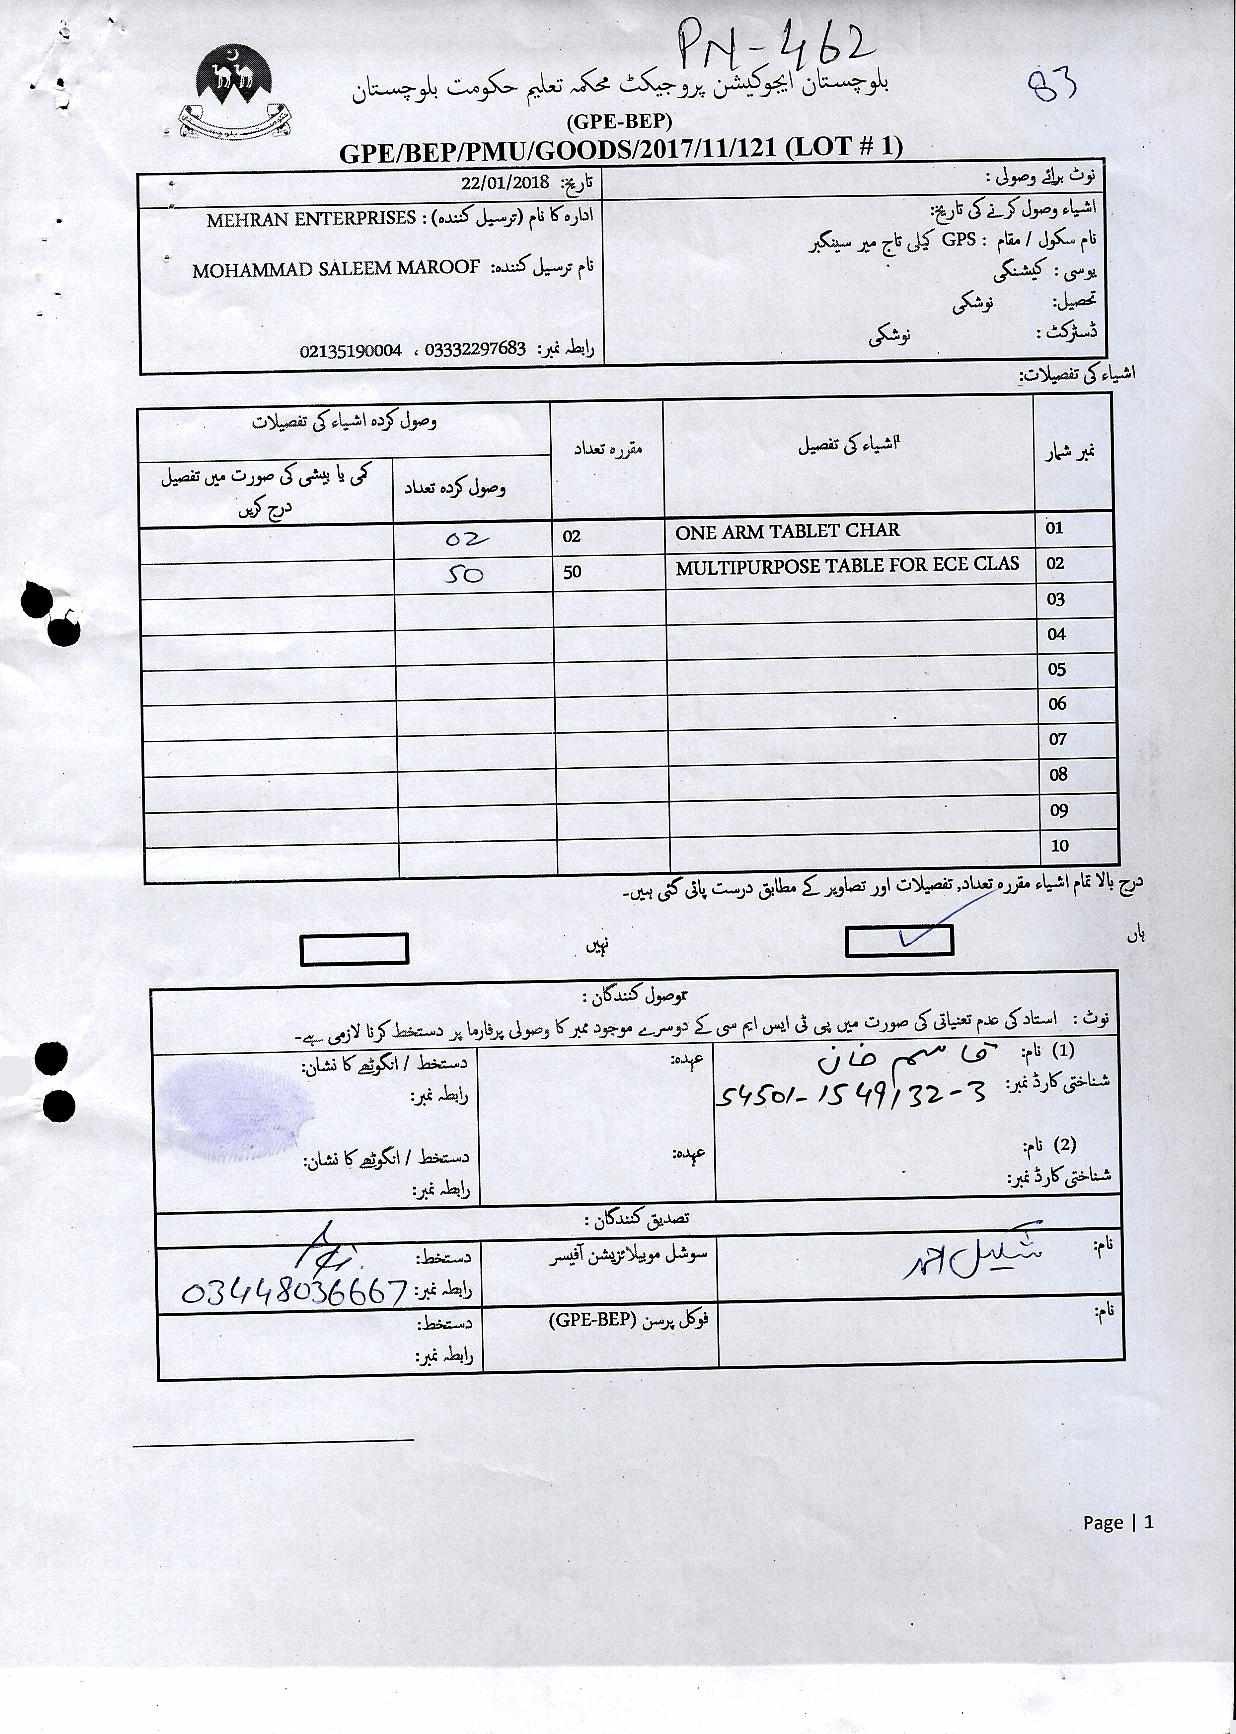 PN-462
83
بلوچستان ایجوکیشن پروجیکٹ محکمہ تعلیم حکومت بلوچستان
(GPE-BEP)
GPE/BEP/PMU/GOODS/2017/11/121 (LOT # 1)
نوٹ برائے وصولی :
تاریخ: 22/01/2018
اشیاء وصول کرنے کی تاریخ:
ادارہ کا نام (ترسیل کنندہ) : MEHRAN ENTERPRISES
نام سکول / مقام : GPS کیلی تاج میر سینگبر
نام ترسیل کنندہ: MOHAMMAD SALEEM MAROOF
یوسی : کیشنگی
تحصیل: نوشکی
ڈسٹرکٹ : نوشکی
رابطہ نمبر: 03332297683 ، 02135190004
اشیاء کی تفصیلات:
نمبر شمار
اشیاء کی تفصیل
مقررہ تعداد
وصول کردہ اشیاء کی تفصیلات
وصول کردہ تعداد
کمی یا بیشی کی صورت میں تفصیل
درج کریں
01 ONE ARM TABLET CHAR 02 02
02 MULTIPURPOSE TABLE FOR ECE CLAS 50 50
03
04
05
06
07
08
09
10
درج بالا تمام اشیاء مقررہ تعداد، تفصیلات اور تصاویر کے مطابق درست پائی گئی ہیں۔
ہاں ✓ نہیں
وصول کنندگان :
نوٹ : استاد کی عدم تعنیاتی کی صورت میں پی ٹی ایس ایم سی کے دوسرے موجود ممبر کا وصولی پرفارما پر دستخط کرنا لازمی ہے۔
(1) نام: قاسم خان عہدہ: دستخط / انگوٹھے کا نشان:
شناختی کارڈ نمبر: 54501-1549132-3 رابطہ نمبر:
(2) نام: عہدہ: دستخط / انگوٹھے کا نشان:
شناختی کارڈ نمبر: رابطہ نمبر:
تصدیق کنندگان :
نام: شکیل احمد سوشل موبیلائزیشن آفیسر دستخط:
رابطہ نمبر: 03448036667
نام: فوکل پرسن (GPE-BEP) دستخط:
رابطہ نمبر:
Page | 1